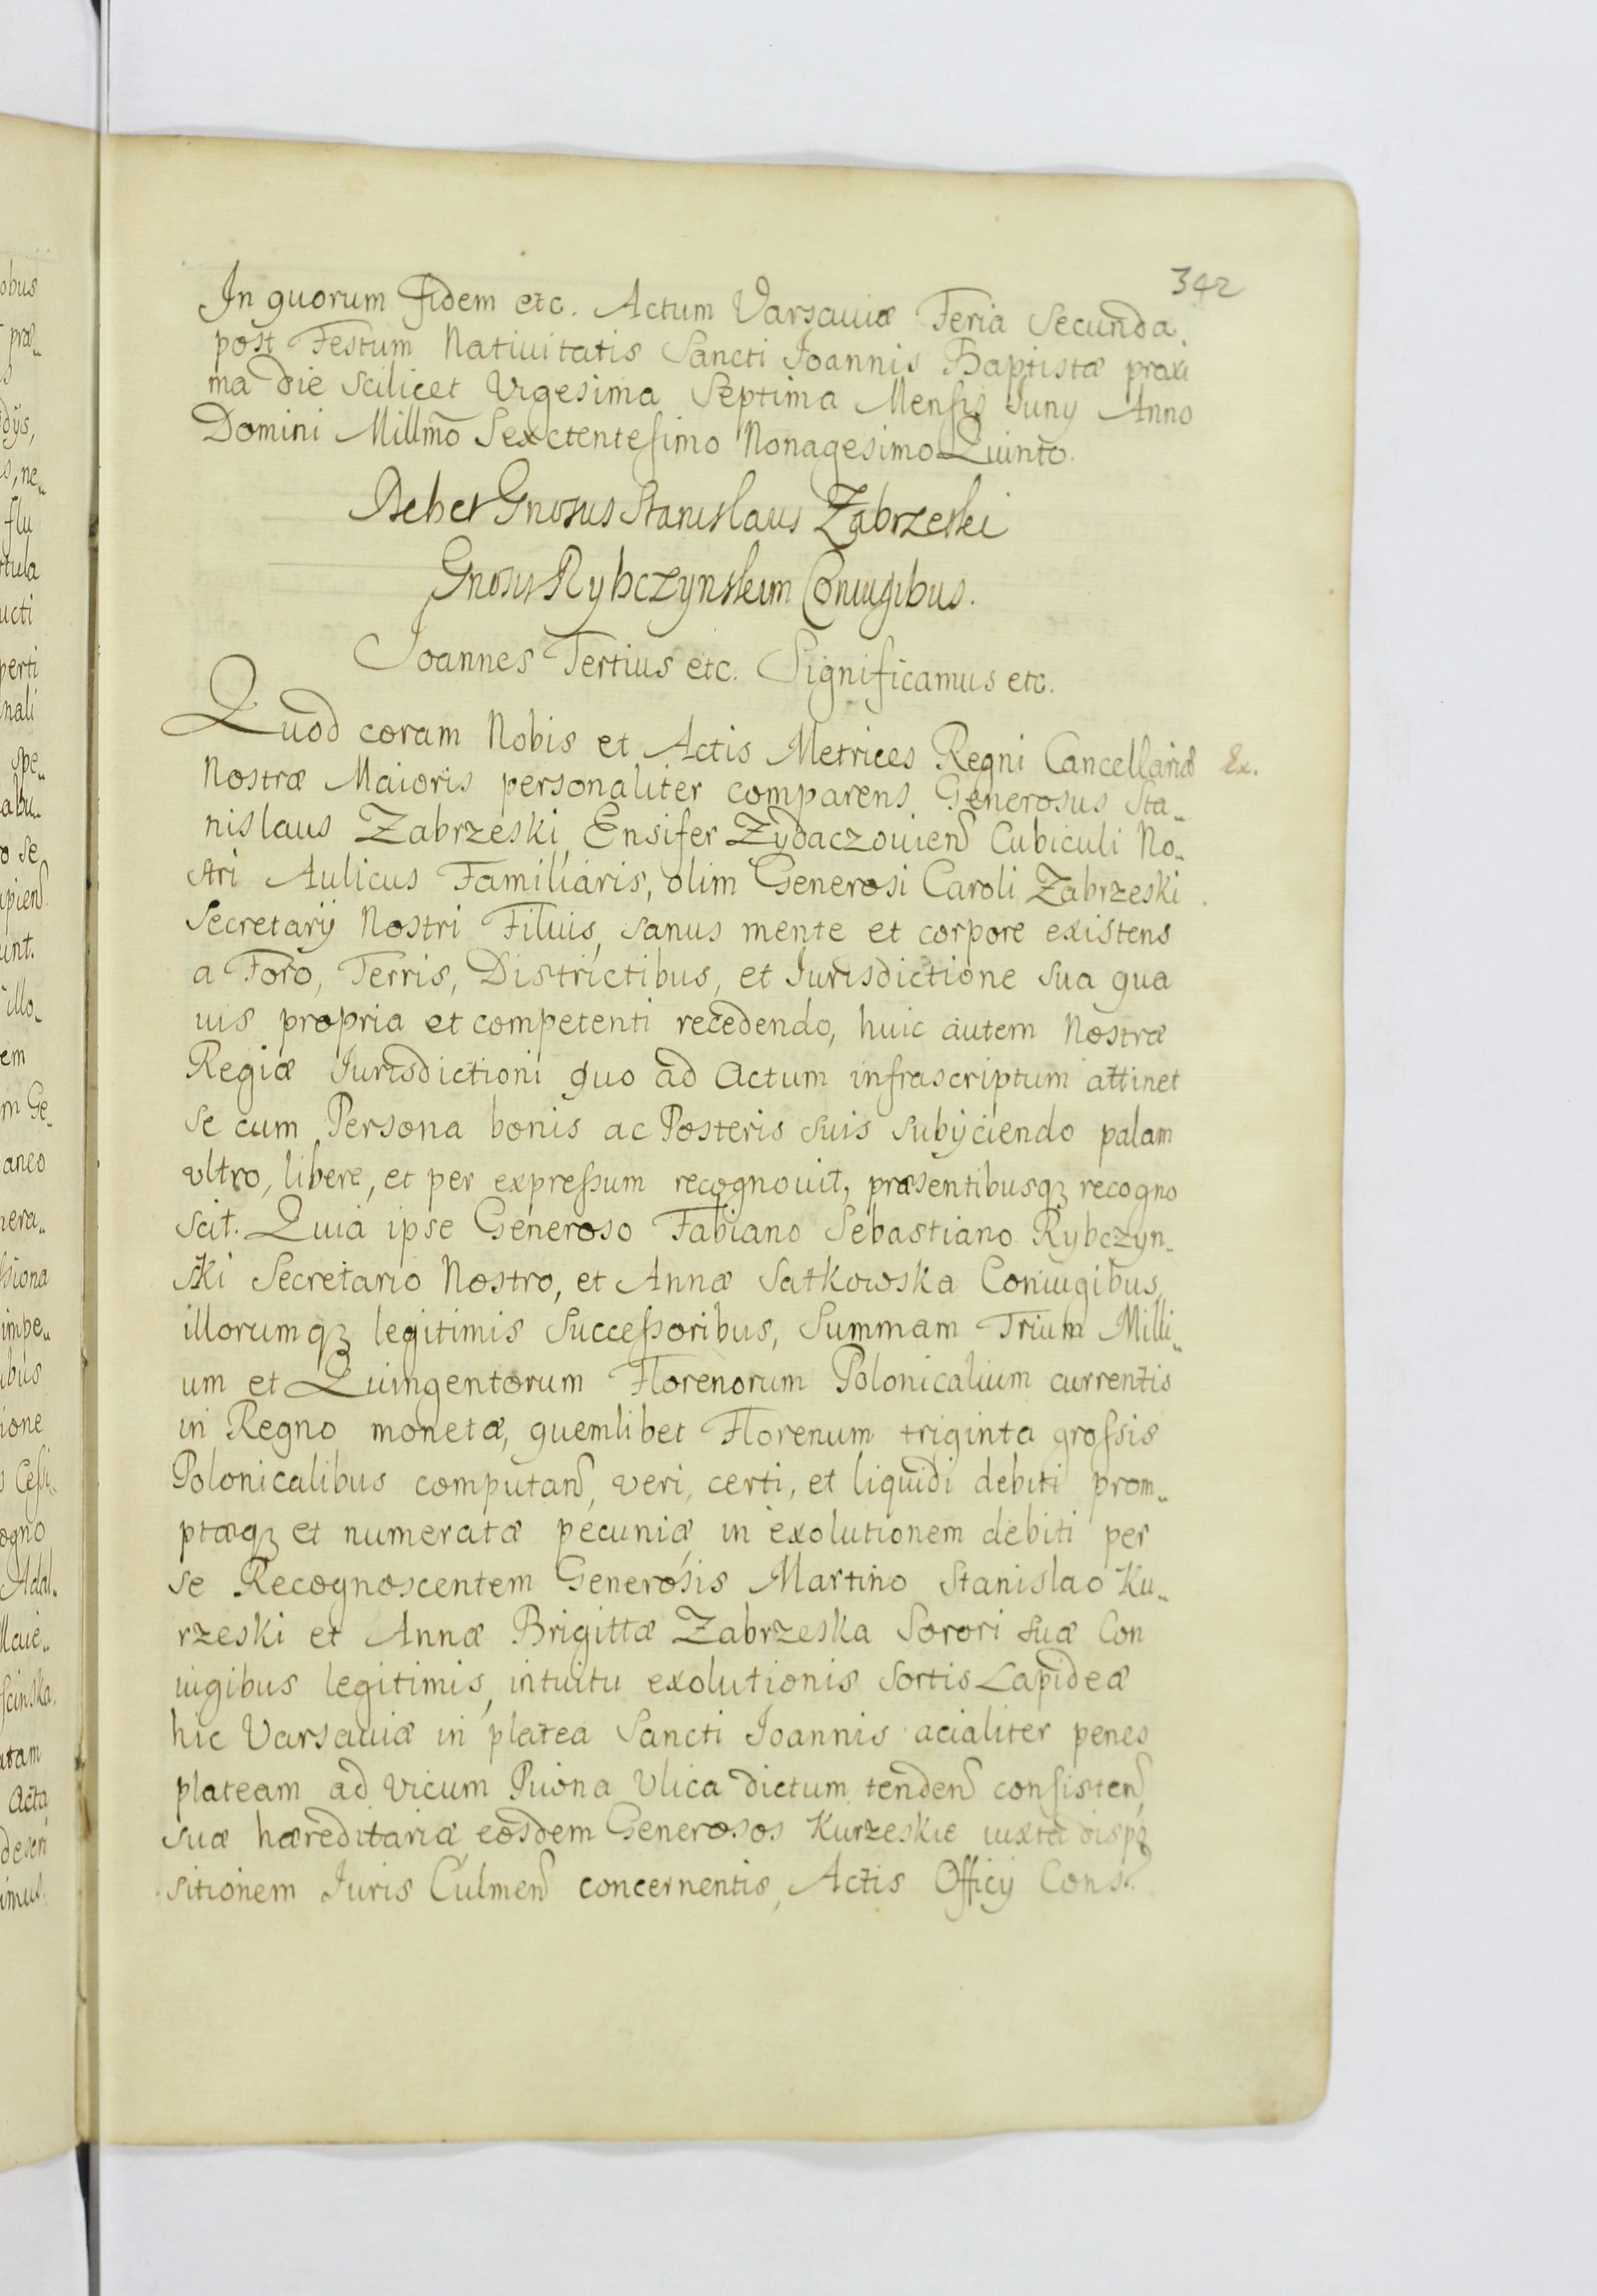 342
In quorum fidem etc. Actum Varsauiæ Feria Secunda
post Festum Natiuitatis Sancti Joannis Baptistæ proxi
ma die scilicet Vigesima Septima Mensis Juny Anno
Domini Millmo Sexctentesimo Nonagesimo Quinto.
Debet Gnosus Stanislaus Zabrzeski
Gnosis Rybczynskim Coniugibus.
Joannes Tertius etc. Significamus etc.
Quod coram Nobis et Actis Metrices Regni Cancellariæ Ex.
Nostræ Maioris personaliter comparens Generosus Sta„
nislaus Zabrzeski, Ensifer Zydaczouien Cubiculi No„
stri Aulicus Familiaris, olim Generosi Caroli Zabrzeski
Secretarij Nostri Filius, sanus mente et corpore existens
a Foro, Terris, Districtibus, et Jurisdictione sua qua
uis propria et competenti recedendo, huic autem Nostræ
Regiæ Jurisdictioni quo ad Actum infrascriptum attinet
se cum Persona bonis ac Posteris suis subijciendo palam
vltro, libere, et per expressum recognouit, præsentibusqz recogno
scit. Quia ipse Generoso Fabiano Sebastiano Rybczyn„
ski Secretario Nostro, et Annæ Satkowska Coniugibus,
illorumqz legitimis Successoribus, Summam Trium Milli„
um et Quingentorum Florenorum Polonicalium currentis
in Regno monetæ, quemlibet Florenum triginta grossis
Polonicalibus computan, veri, certi, et liquidi debiti prom„
ptæqz et numeratæ pecuniæ in exolutionem debiti per
se Recognoscentem Generosis Martino Stanislao Ku„
rzeski et Annæ Brigittæ Zabrzeska Sorori suæ Con
iugibus legitimis, intuitu exolutionis sortis Lapideæ
hic Varsauiæ in platea Sancti Joannis acialiter penes
plateam ad vicum Piwna Vlica dictum tenden consisten,
suæ hæreditariæ, eosdem Generosos Kurzeskie iuxta dispo
sitionem Juris Culmen concernentis, Actis Officij Cons.